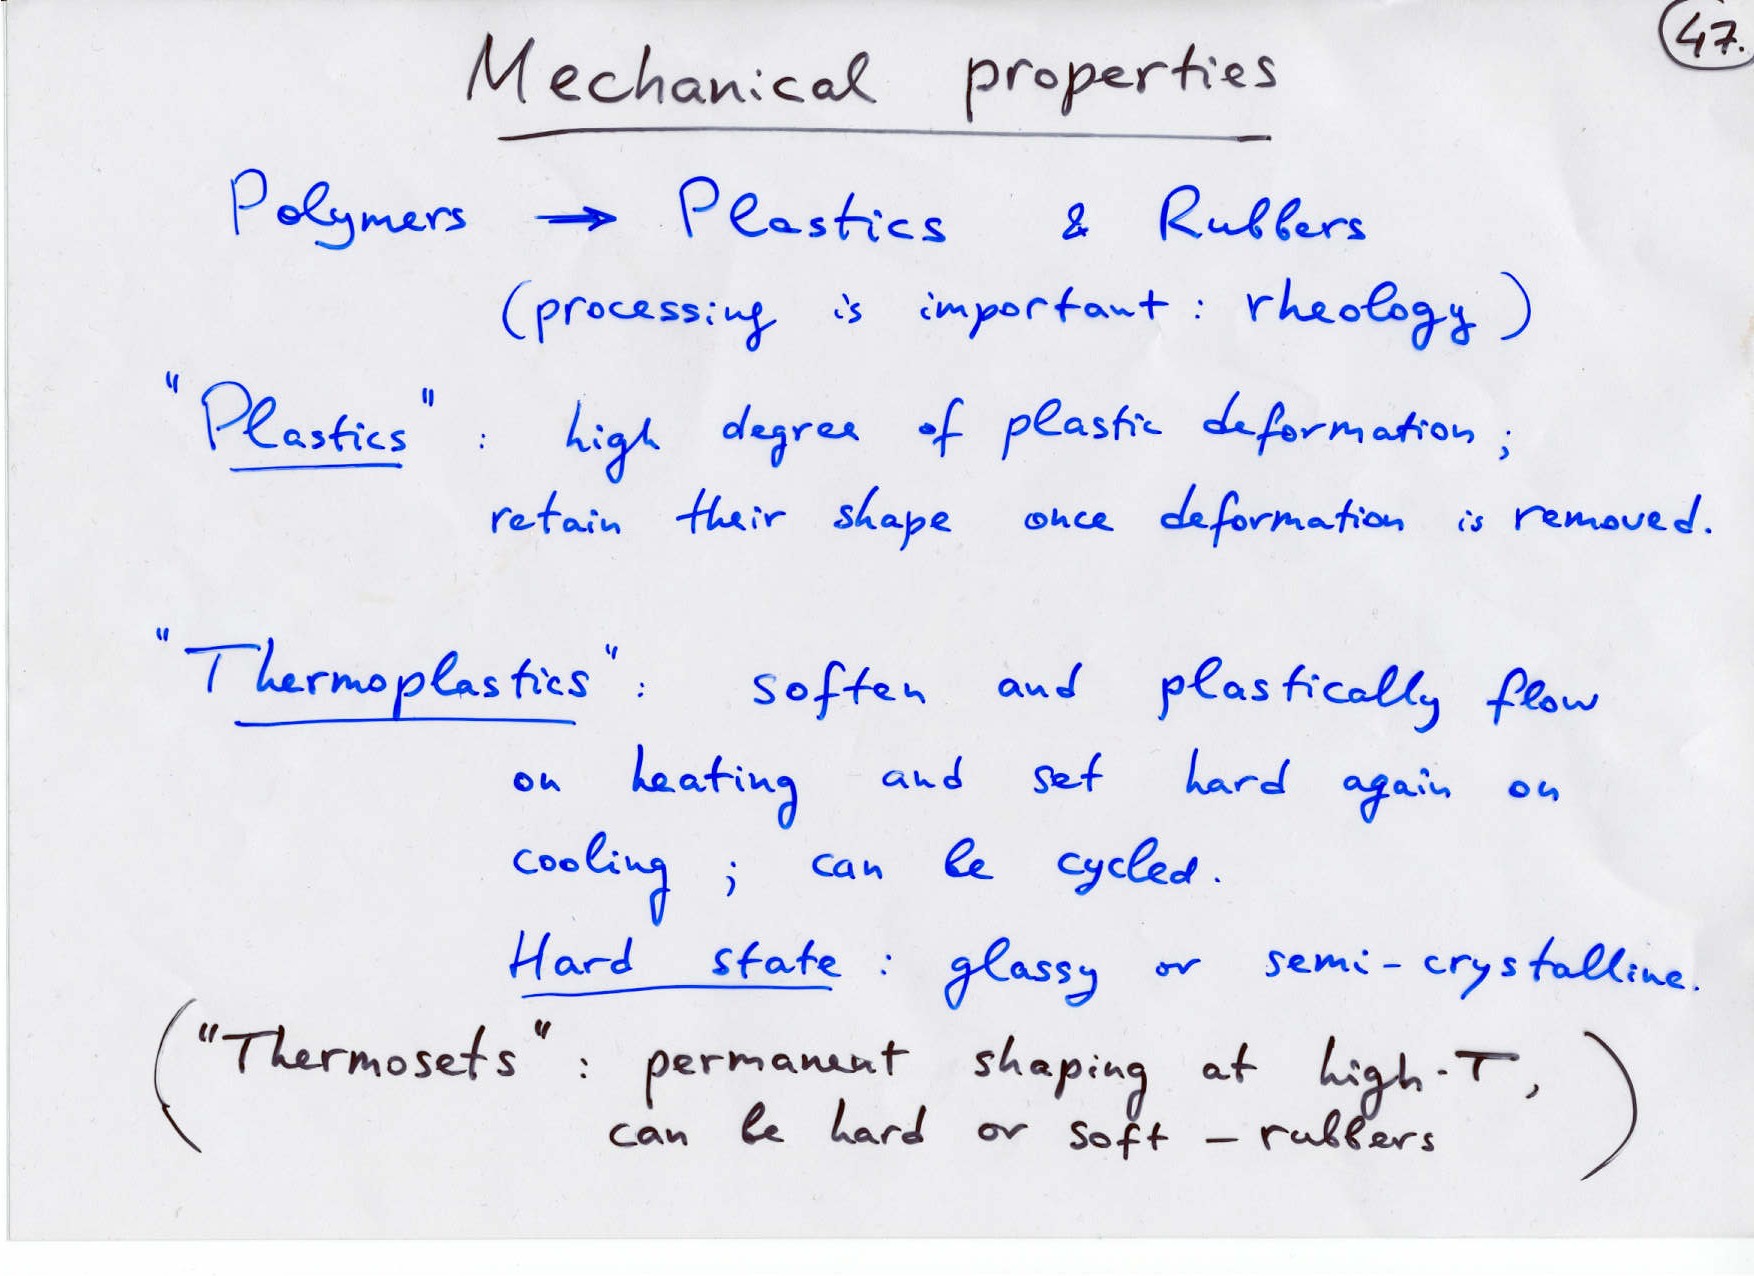 47.
Mechanical properties
Polymers → Plastics & Rubbers
(processing is important : rheology)
"Plastics" : high degree of plastic deformation ;
retain their shape once deformation is removed.
"Thermoplastics" : soften and plastically flow
on heating and set hard again on
cooling ; can be cycled.
Hard state : glassy or semi-crystalline.
("Thermosets" : permanent shaping at high-T,
can be hard or soft – rubbers)